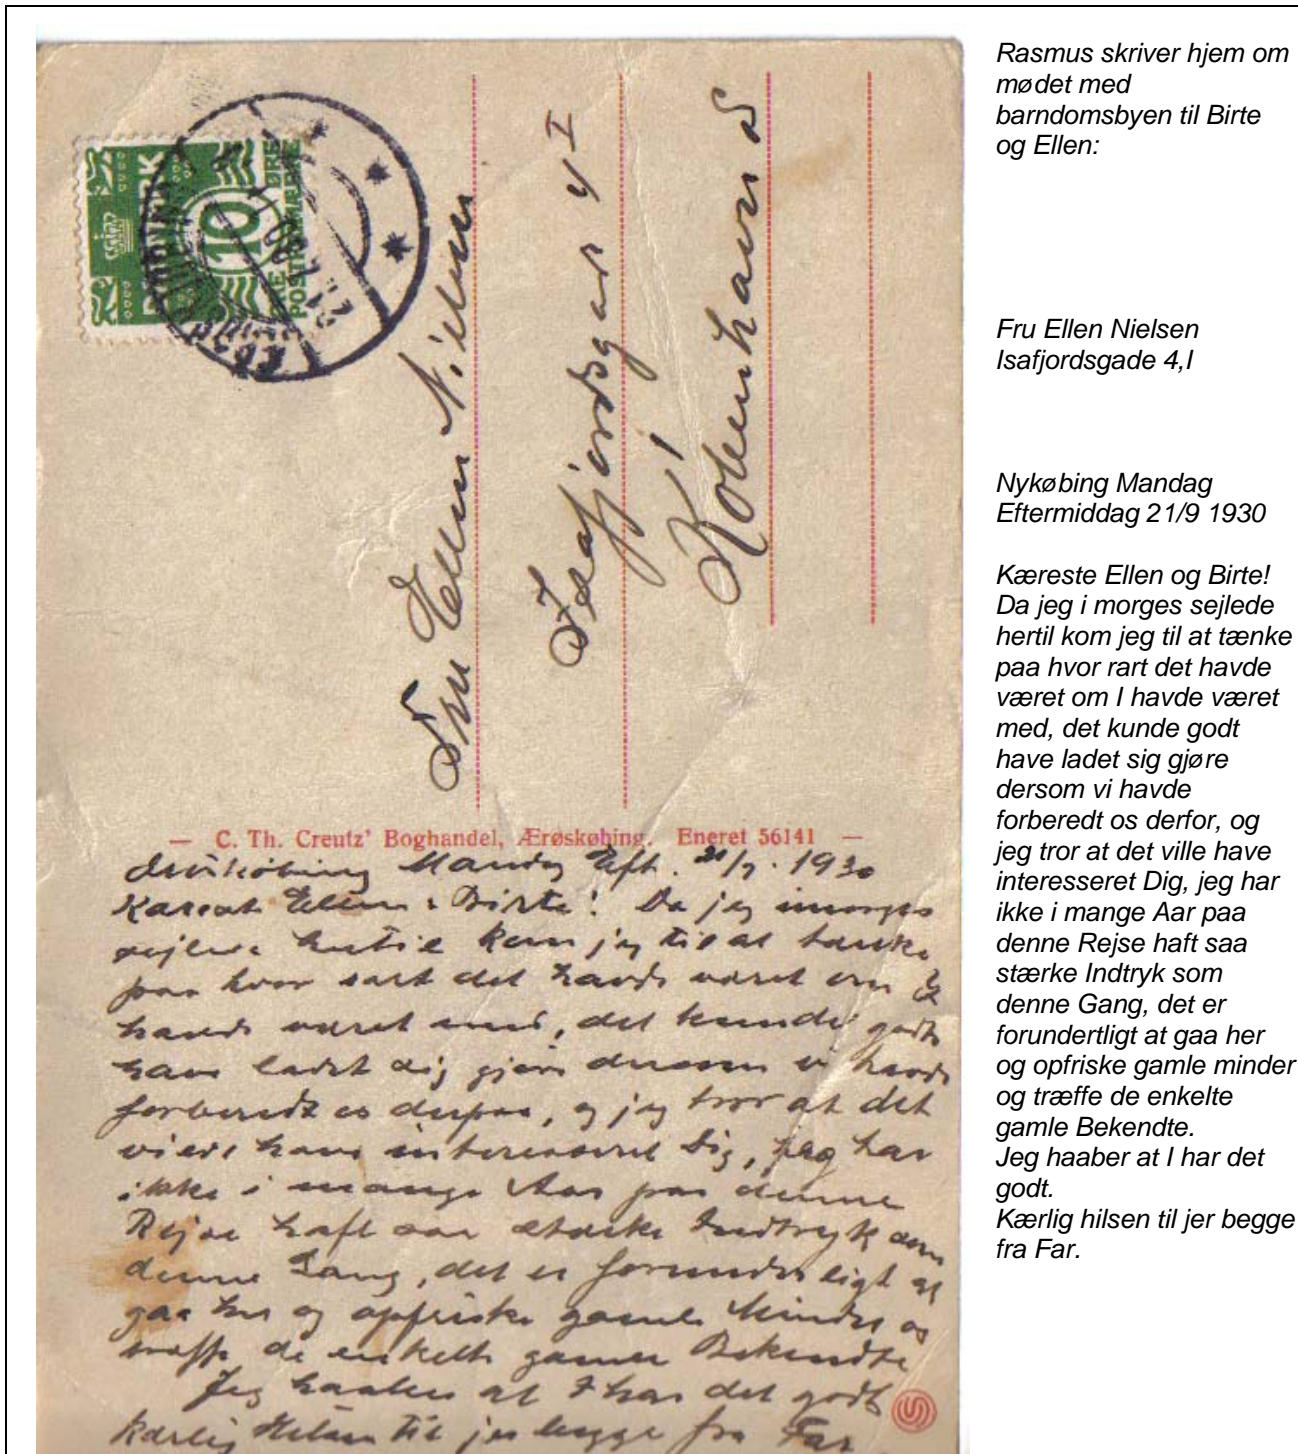 Rasmus skriver hjem om
mødet med
barndomsbyen til Birte
og Ellen:
Fru Ellen Nielsen
Isafjordsgade 4,I
Nykøbing Mandag
Eftermiddag 21/9 1930
Kæreste Ellen og Birte!
Da jeg i morges sejlede
hertil kom jeg til at tænke
paa hvor rart det havde
været om I havde været
med, det kunde godt
have ladet sig gjøre
dersom vi havde
forberedt os derfor, og
jeg tror at det ville have
interesseret Dig, jeg har
ikke i mange Aar paa
denne Rejse haft saa
stærke Indtryk som
denne Gang, det er
forundertligt at gaa her
og opfriske gamle minder
og træffe de enkelte
gamle Bekendte.
Jeg haaber at I har det
godt.
Kærlig hilsen til jer begge
fra Far.
10
ØRE
POSTFÆRGE
Fru Ellen Nielsen
Isafjordsgade 4 I
København S
— C. Th. Creutz' Boghandel, Ærøskøbing. Eneret 56141 —
Mandag Eft. 21/7. 1930
Kæreste Ellen & Birte! Da jeg imorges
sejlede hertil kom jeg til at tænke
paa hvor rart det havde været om I
havde været med, det kunde godt
have ladet sig gjøre dersom vi havde
forberedt os derpaa, og jeg tror at det
vilde have interesseret Dig, jeg har
ikke i mange Aar paa denne
Rejse haft saa stærke Indtryk som
denne Gang, det er forunderligt at
gaa her og opfriske gamle Minder og
træffe de enkelte gamle Bekendte
Jeg haaber at I har det godt
Kærlig Hilsen til jer begge fra Far